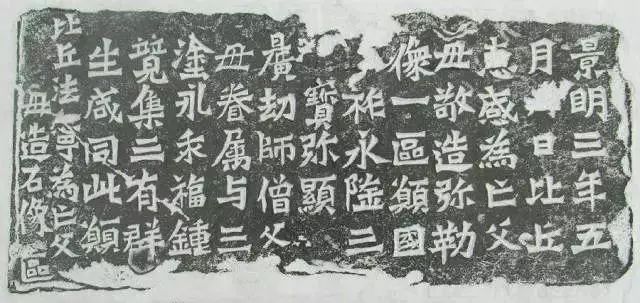 景明三年五
月日比丘
惠感為亡父
毋敬造弥勒
像一區願國
祚永隆三
寶弥顯
曠劫師僧父
毋眷属与三
塗永乖福鍾
竟集三有群
生咸同此願
比丘法寧為亡父
毋造石像區